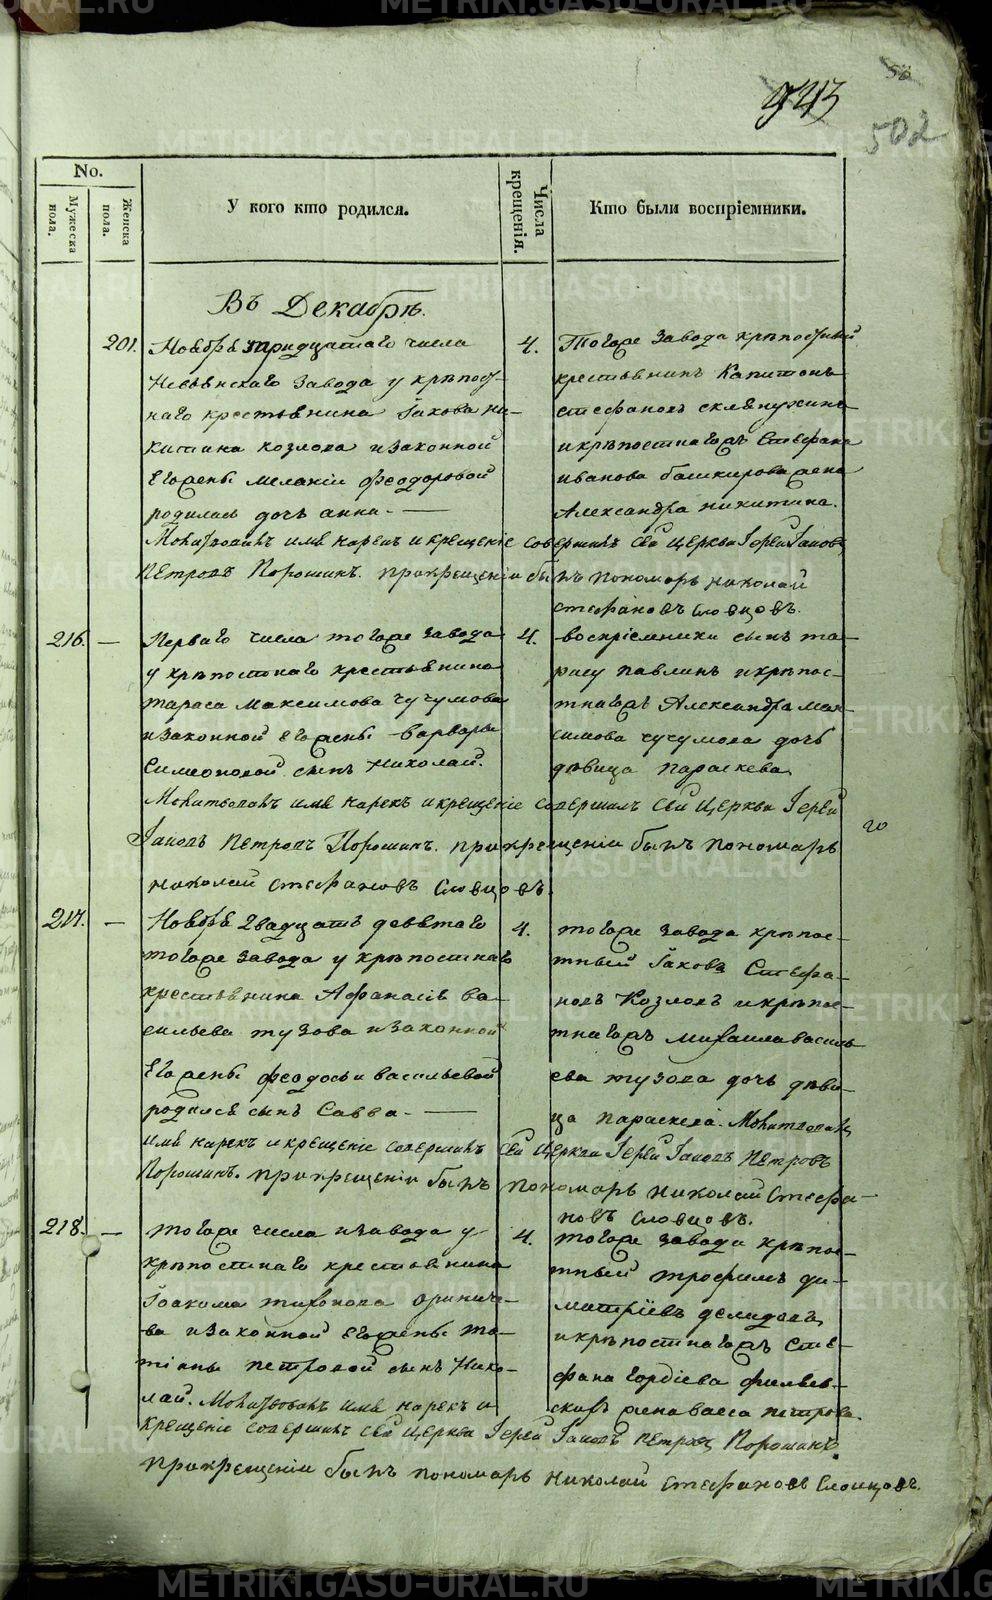 943
502
No.
Мужеска пола.
Женска пола.
У кого кто родился.
Числа крещенія.
Кто были воспріемники.
Въ Декабрѣ.
201.
Ноября тридцатаго числа
Невьянскаго завода у крѣпост-
наго крестьянина Іакова Ни-
китина Козлова и законной
его жены Меланіи Феодоровой
родилась дочь Анна.
4.
Тогоже завода крѣпостный
крестьянинъ Капитонъ
Стефановъ
и крѣпостнагожъ Стефана
Иванова Башкирова жена
Александра Никитина.
Молитвовалъ имя нарекъ и крещеніе совершилъ сей церкви Іерей Іаковъ
Петровъ Порошинъ. При крещеніи былъ пономарь Николай
Стефановъ Словцовъ.
216.
Перваго числа тогоже завода
у крѣпостнаго крестьянина
Тараса Максимова Чучумова
и законной его жены Варвары
Симеоновой сынъ Николай.
4.
воспріемники сынъ Та-
расу Павлинъ и крѣпос-
тнагожъ Александра Мак-
симова Чучумова дочь
дѣвица Параскева
Молитвовалъ имя нарекъ и крещеніе совершилъ сей Церкви Іерей
Іаковъ Петровъ Порошинъ. При крещеніи былъ пономарь
Николай Стефановъ Словцовъ.
217.
Ноября двадцать девятаго
тогоже завода у крѣпостнаго
крестьянина Афанасія Ва-
сильева Тузова и законной
его жены Феодосьи Васильевой
родился сынъ Савва.
4.
тогоже завода крѣпос-
тный Іаковъ Стефа-
новъ Козловъ и крѣпос-
тнагожъ Михаила Василь-
ева Тузова дочь дѣви-
ца Параскева. Молитвовалъ
имя нарекъ и крещеніе совершилъ сей Церкви Іерей Іаковъ Петровъ
Порошинъ. При крещеніи былъ пономарь Николай Стефа-
новъ Словцовъ.
218.
тогоже числа и завода у
крѣпостнаго крестьянина
Іоакима Тихонова
и законной его жены Та-
тіаны Петровой сынъ Нико-
лай. Молитвовалъ имя нарекъ и
4.
тогоже завода крѣпос-
тный Трофимъ Ди-
митріевъ Демидовъ
и крѣпостнагожъ Сте-
фана Гордіева
жена Васса Петрова.
крещеніе совершилъ сей церкви Іерей Іаковъ Петровъ Порошинъ.
При крещеніи былъ пономарь Николай Стефановъ Словцовъ.
METRIKI.GASO-URAL.RU